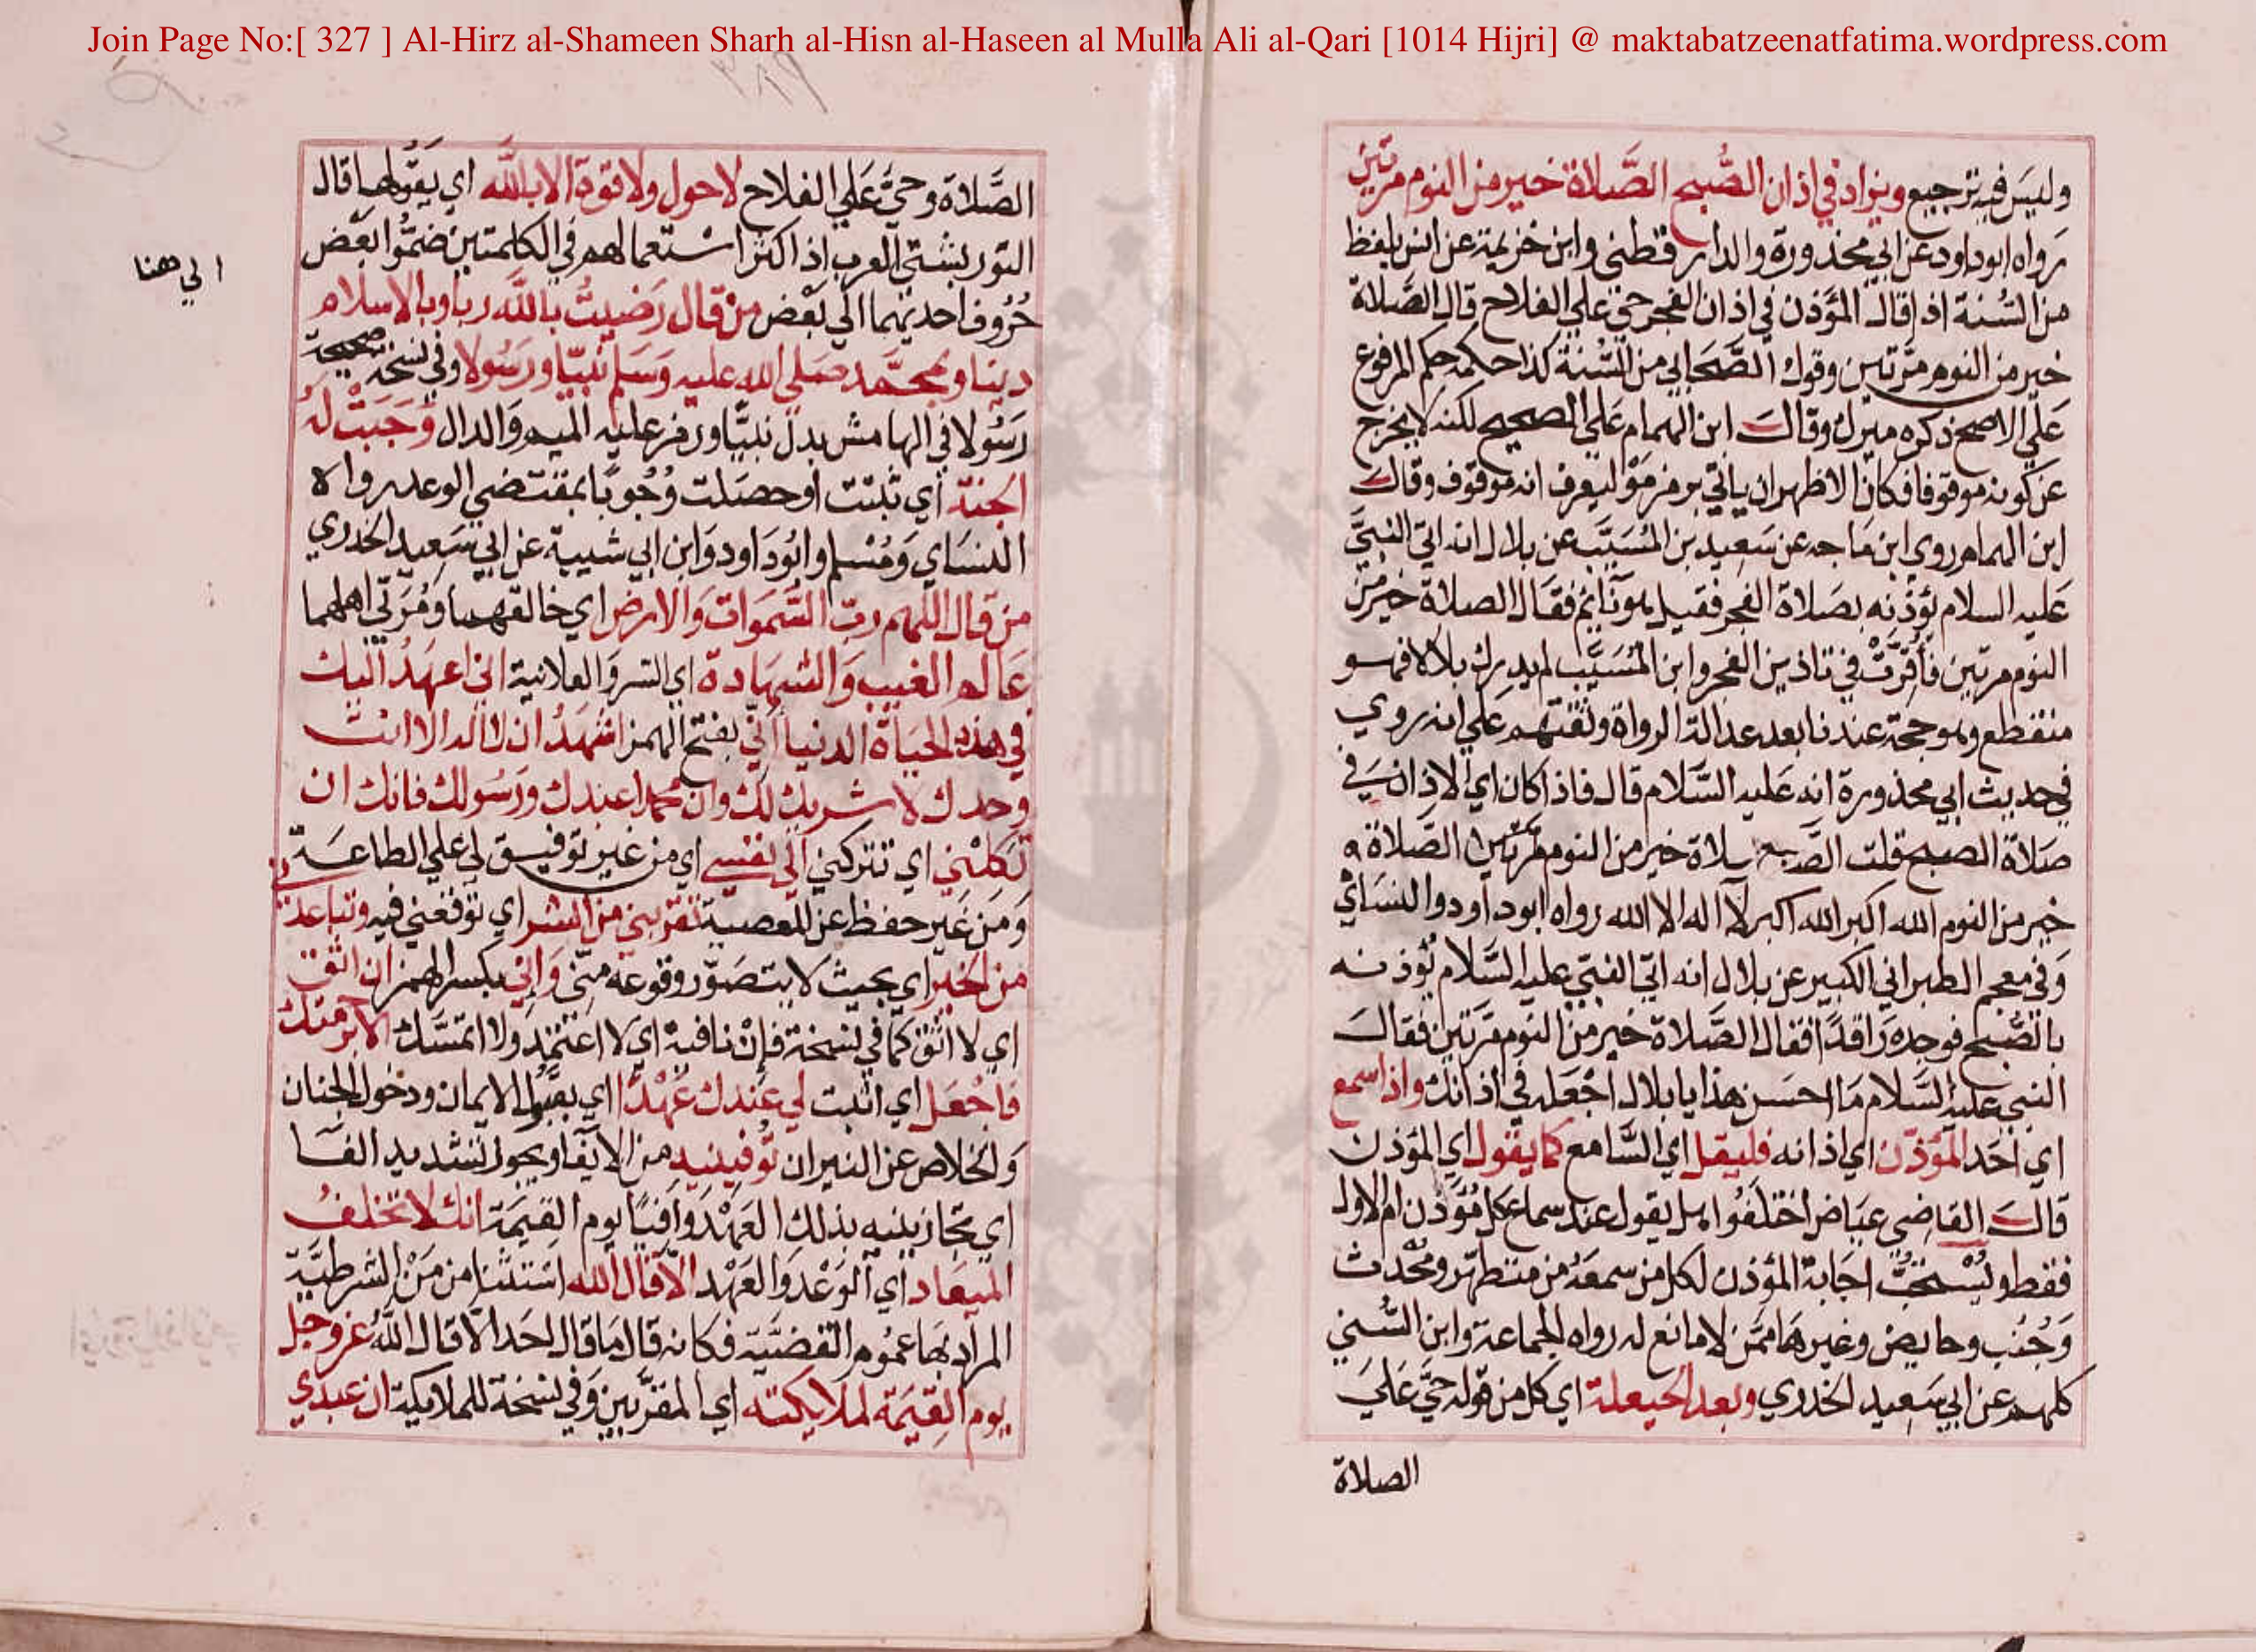 Join Page No:[ 327 ] Al-Hirz al-Shameen Sharh al-Hisn al-Haseen al Mulla Ali al-Qari [1014 Hijri] @ maktabatzeenatfatima.wordpress.com
وليس فيه ترجيع ويزاد في اذان الصُّبح الصَّلاة خير من النوم مرتين
رواه ابوداود عن ابي محذورة والدارقطني وابن خزيمة عن انس بلفظ
من السُّنة اذا قال المؤذن في اذان الفجر حي علي الفلاح قال الصَّلاة
خير من النوم مرَّتين وقول الصَّحابي من السُّنة كذا حكمه حكم المرفوع
علي الاصح ذكره ميرك وقال ابن الهمام علي الصحيح لكنه لا يخرج
عن كونه موقوفا فكان الاظهر ان ياتي برمز مَوْ ليعرف انه موقوف وقال
ابن الهمام روي ابن ماجه عن سعيد بن المُسَيَّب عن بلال انه اتي النبيَّ
عليه السلام يؤذنه بصَلاة الفجر فقيل هو نائم فقال الصلاة خير من
النوم مرتين فأُقرَّتْ في تاذين الفجر وابن المُسَيَّب لم يدرك بلالا فهو
منقطع وهو حجة عندنا بعد عدالة الرواة وثقتهم علي انه روي
في حديث ابي محذورة انه عليه السَّلام قال فاذا كان اي الاذان في
صَلاة الصبح قلت الصلاة خير من النوم مرَّتين الصَّلاة
خير من النوم الله اكبر الله اكبر لا اله الا الله رواه ابوداود والنسَاي
وَفي معجم الطبراني الكبير عن بلال انه اتي النبيَّ عليه السَّلام يُؤذنه
بالصُّبح فوجده رَاقدًا فقال الصَّلاة خير من النوم مرَّتين فقال
النبي عليه السَّلام مَا احسَن هذا يا بلال اجْعَله في اذانك واذا سمع
اي احَد المؤذّن اي اذانه فليقل اي السَّامع كما يقول اي المؤذن
قال القاضِي عيَاض اختلَفُوا هل يقول عند سماع كل مُؤذّن ام الاول
فقط ويُسْتحبُّ اجَابة المؤذن لكل من سمعَهُ من متطهّر ومُحْدث
وَجُنُب وحايض وغيرهَا ممَّن لا مانع له رواه الجماعة وابن السُّني
كلهم عن ابي سَعيد الخدري وبعد الحيعلة اي كل من قوله حيَّ عَلَي
الصلاة
الصَّلاة وحيَّ عَلي الفلاح لا حول ولا قوة الا بالله اي يقولها قال
التوربشتي العرب اذا كثر استعمالهم في الكلمتين ضمُّوا بعْض
حُرُوف احديهما الي بَعْض من قال رَضيتُ بالله ربا وبالاسلام
الي هنا
دينا وبمحمَّد صَلي الله عليه وَسَلم نبيّا ورَسُولا وفي نسخة صحيحة
رَسُولا في الهامش بدل نبيًّا ورمز عليه الميم وَالدال وَجَبَتْ لهُ
الجنة اي ثبتت او حصَلت وُجُوبًا بمقتضي الوعد رواه
النسَاي وَمُسْلم وابُودَاود وَابن ابي شيبة عن ابي سَعِيد الخدري
من قال اللهم ربّ السَّموات وَالارض اي خالقهما ومُرَبّي اهلهما
عَالم الغيب وَالشهَادة اي السر وَالعلانية اني اعهَدُ اليك
في هذه الحيَاة الدنيا اَنّي بفتح الهمز اشهَدُ ان لا اله الا انت
وحدك لا شريك لك وان محمدا عبدك ورَسُولك فانك ان
تكلْني اي تتركني الي نفسي اي من غير توفيق لي علي الطاعَة
وَمن غَير حفظ عن المعصية تقربني من الشر اي توقعني فيه وتباعدني
من الخير اي بحيث لا يتصَوّر وقوعه منّي وَاِنّي بكسر الهمز ان اثق
اي لا اثق كما في نسخة فإنْ نافية اي لا اعتمد ولا اتمسَّك الا برحمتك
فاجْعَل اي اثبت لي عندك عَهْدًا اي بقبُول الايمان ودخول الجنان
وَالخلاص عن النيران تُوفينيه من الايفا ويجوز تشديد الفَا
اي تجازينيه بذلك العَهْد وَافيًا يوم القيمَة انك لا تخلفُ
الميعَاد اي الوَعْد وَالعَهْد الاّ قال الله استثنا من مَنْ الشرطيَّة
المراد بهَا عمُوم القضيَّة فكانه قال مَا قال احَد الاّ قال اللهُ عز وجل
يوم القيمَة لملايكته اي المقرَّبين وَفي نسخة للملايكة ان عبدي